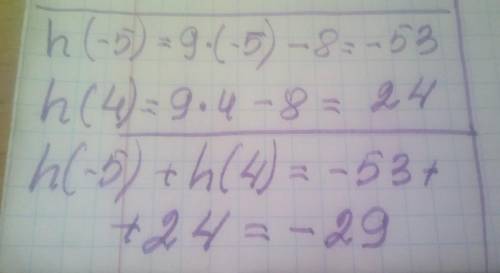 h(-5)=9·(-5)-8=-53
h(4)=9·4-8= 24
h(-5)+h(4)=-53+
+24=-29